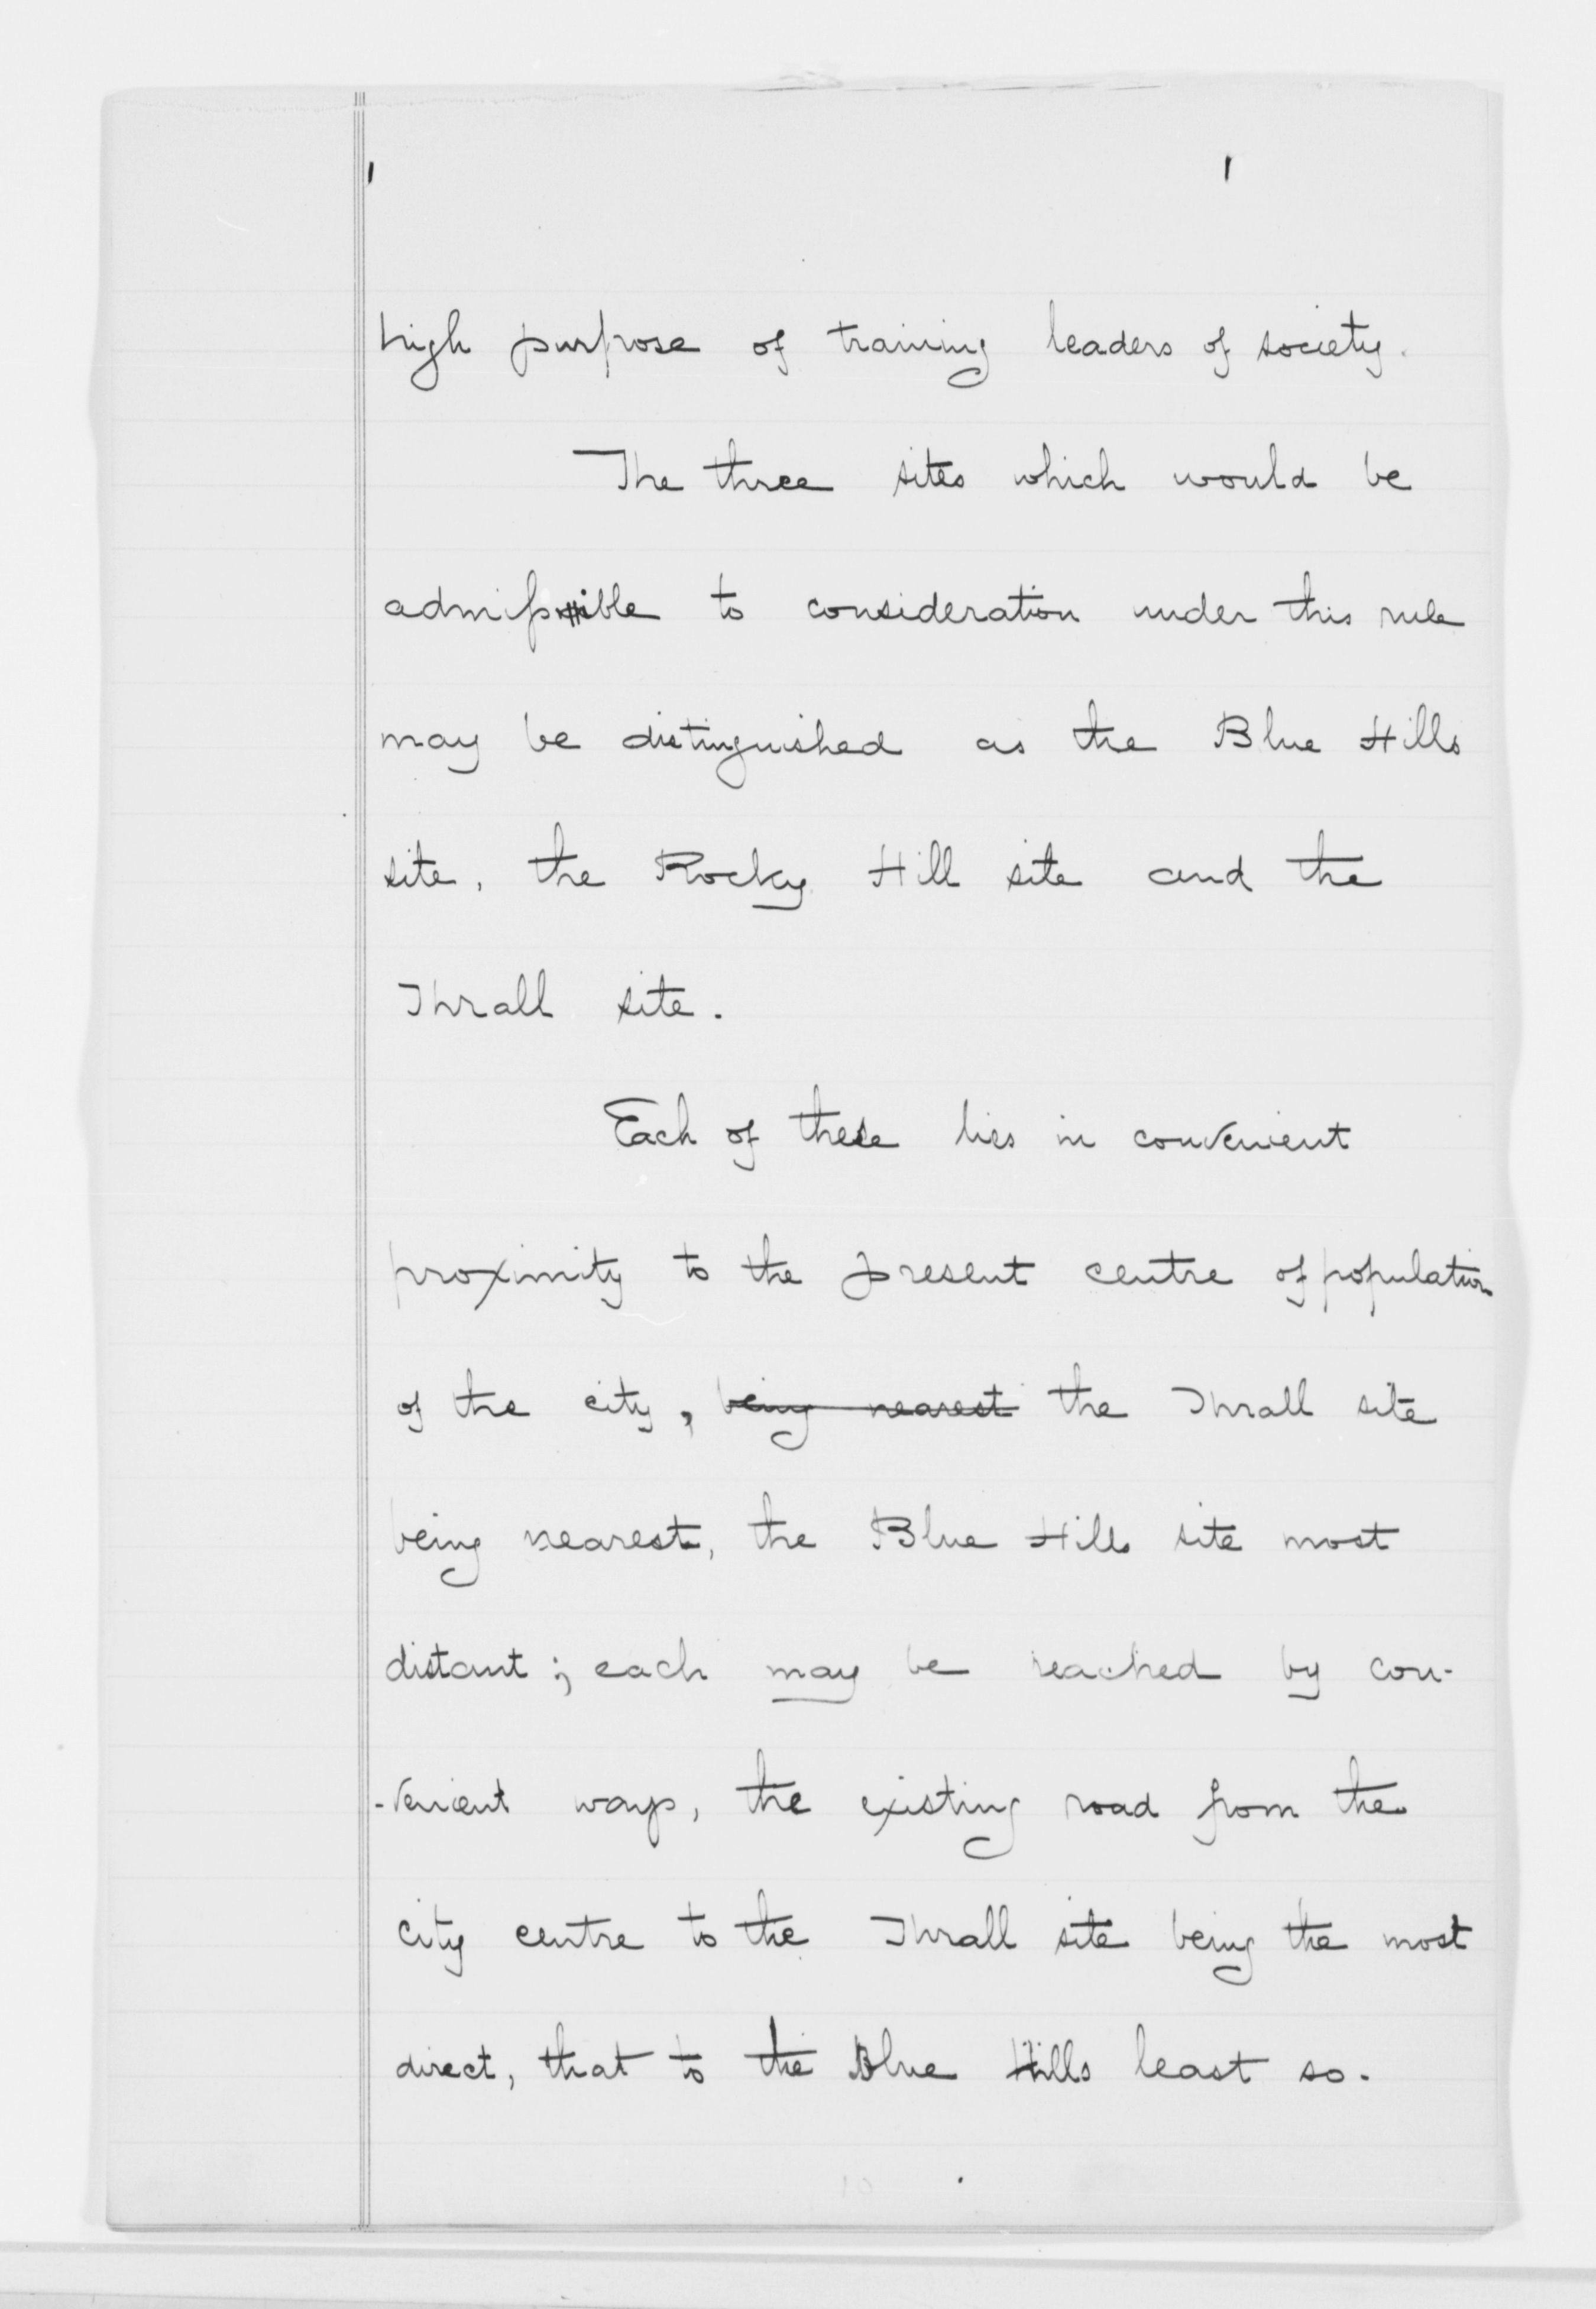 high purpose of training leaders of society.
The three sites which would be
admissible to consideration under this rule
may be distinguished as the Blue Hills
site, the Rocky Hill site and the
Thrall site.
Each of these lies in convenient
proximity to the present centre of population
of the city, being nearest the Thrall site
being nearest, the Blue Hills site most
distant; each may be reached by con-
-venient ways, the existing road from the
city centre to the Thrall site being the most
direct, that to the Blue Hills least so.
10